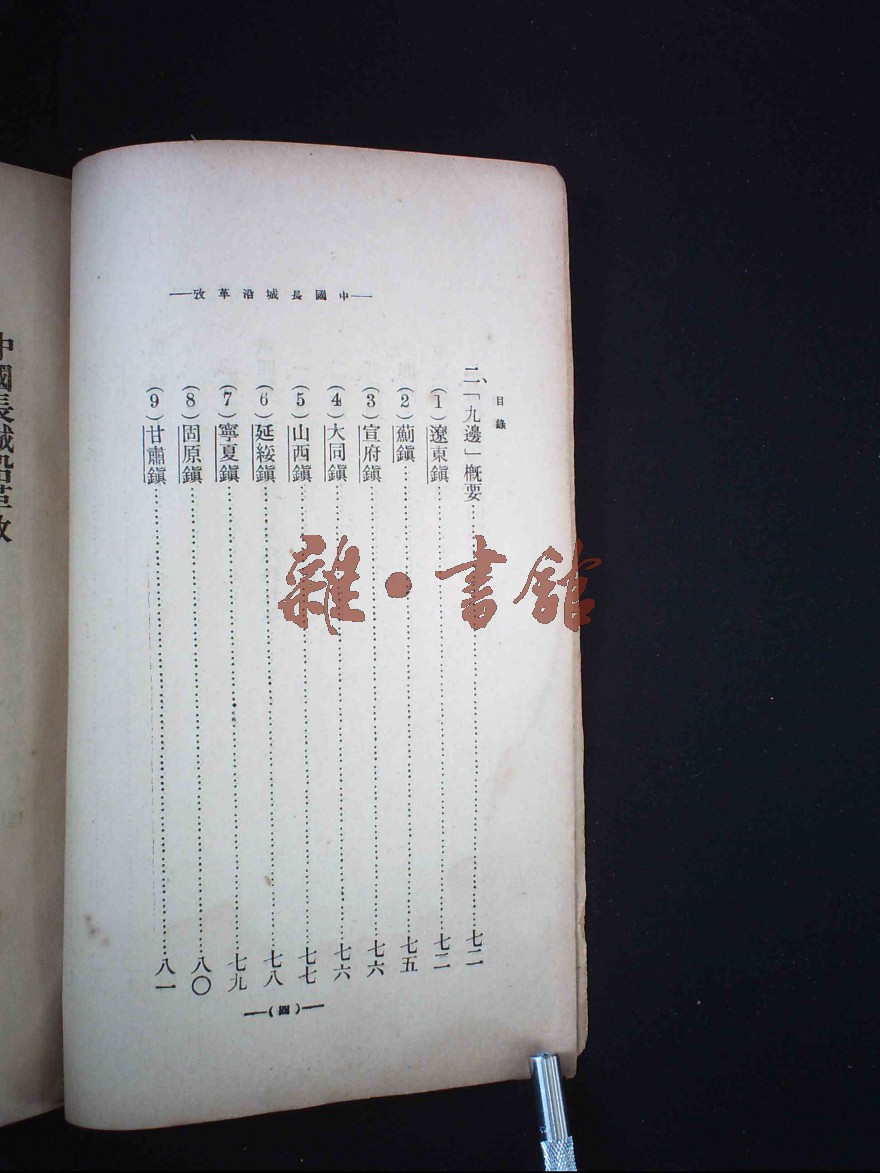 中國長城沿革攷
目錄
二、「九邊」概要……七二
(1)遼東鎭……七二
(2)薊鎭……七五
(3)宣府鎭……七六
(4)大同鎭……七六
(5)山西鎭……七七
(6)延綏鎭……七八
(7)寧夏鎭……七九
(8)固原鎭……八〇
(9)甘肅鎭……八一
(四)
中國長城沿革攷
雜·書館